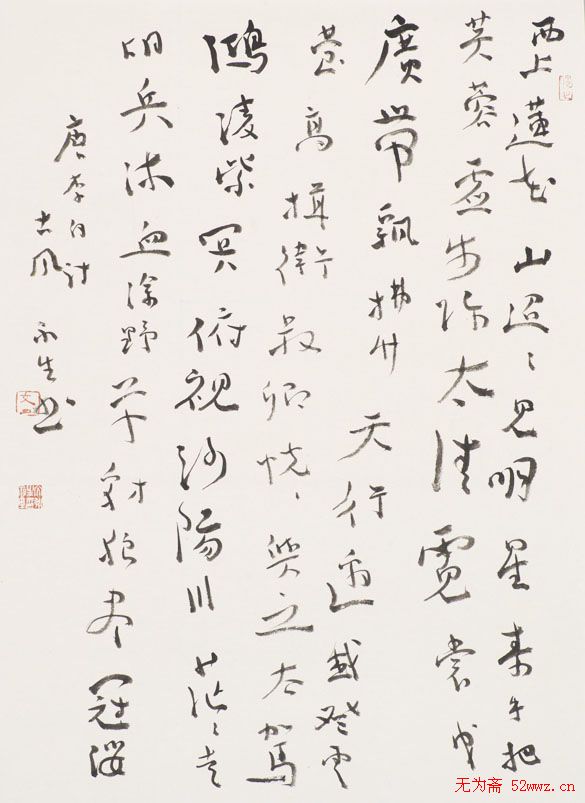 西上蓮花山迢〻見明星素手把
芙蓉虚步躡太清霓裳曳
廣帶飄拂升天行邀我登雲
臺高揖衛叔卿恍〻與之去駕
鴻凌紫冥俯視洛陽川茫〻走
胡兵流血塗野草豺狼尽冠纓
唐李白詩
古風 生书
无为斋 52wwz.cn